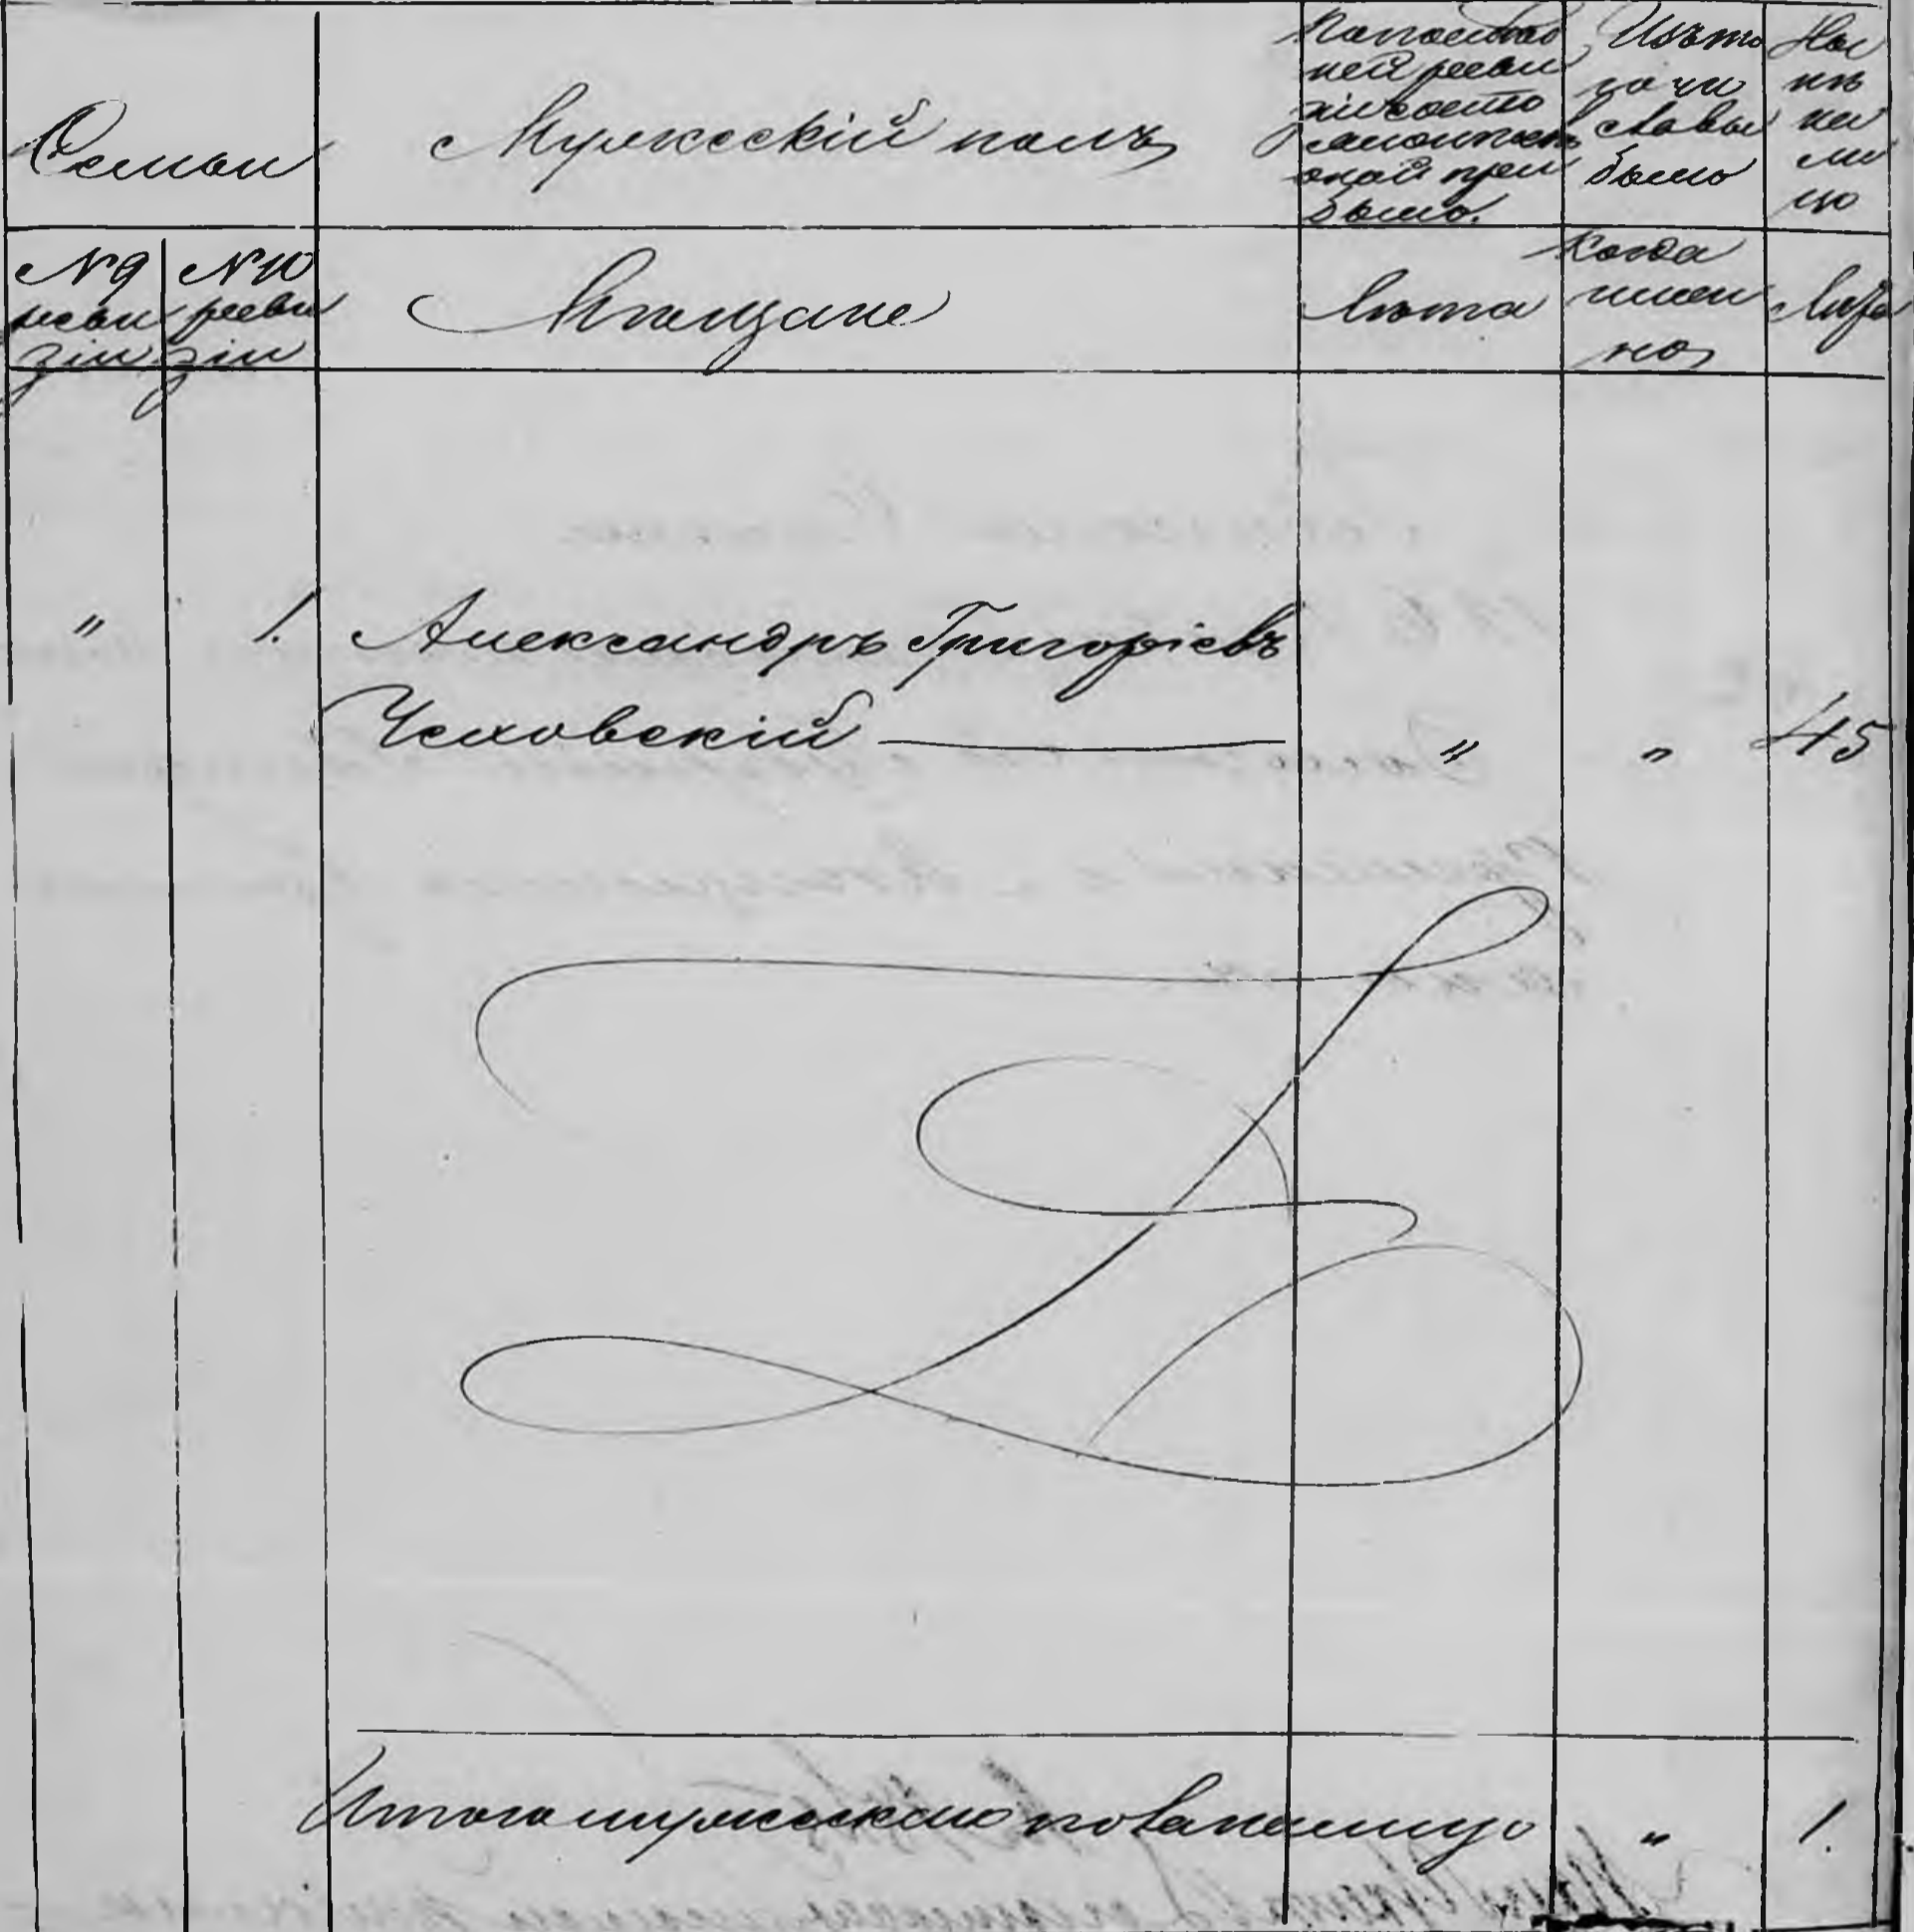 Семьи
Мужескій полъ
По послѣд
ней реви
зіи состо
яло и послѣ
оной при
было.
Изъ то
го чи
сла вы
было
На
ли
цо
№ 9
реви
зіи
№ 10
реви
зіи
Мѣщане
Лѣта
Когда
имен
но
Лѣта
" 1. Александръ Григорьевъ
Чеховскій " " 45
Итого мужеска пола налицо " 1.